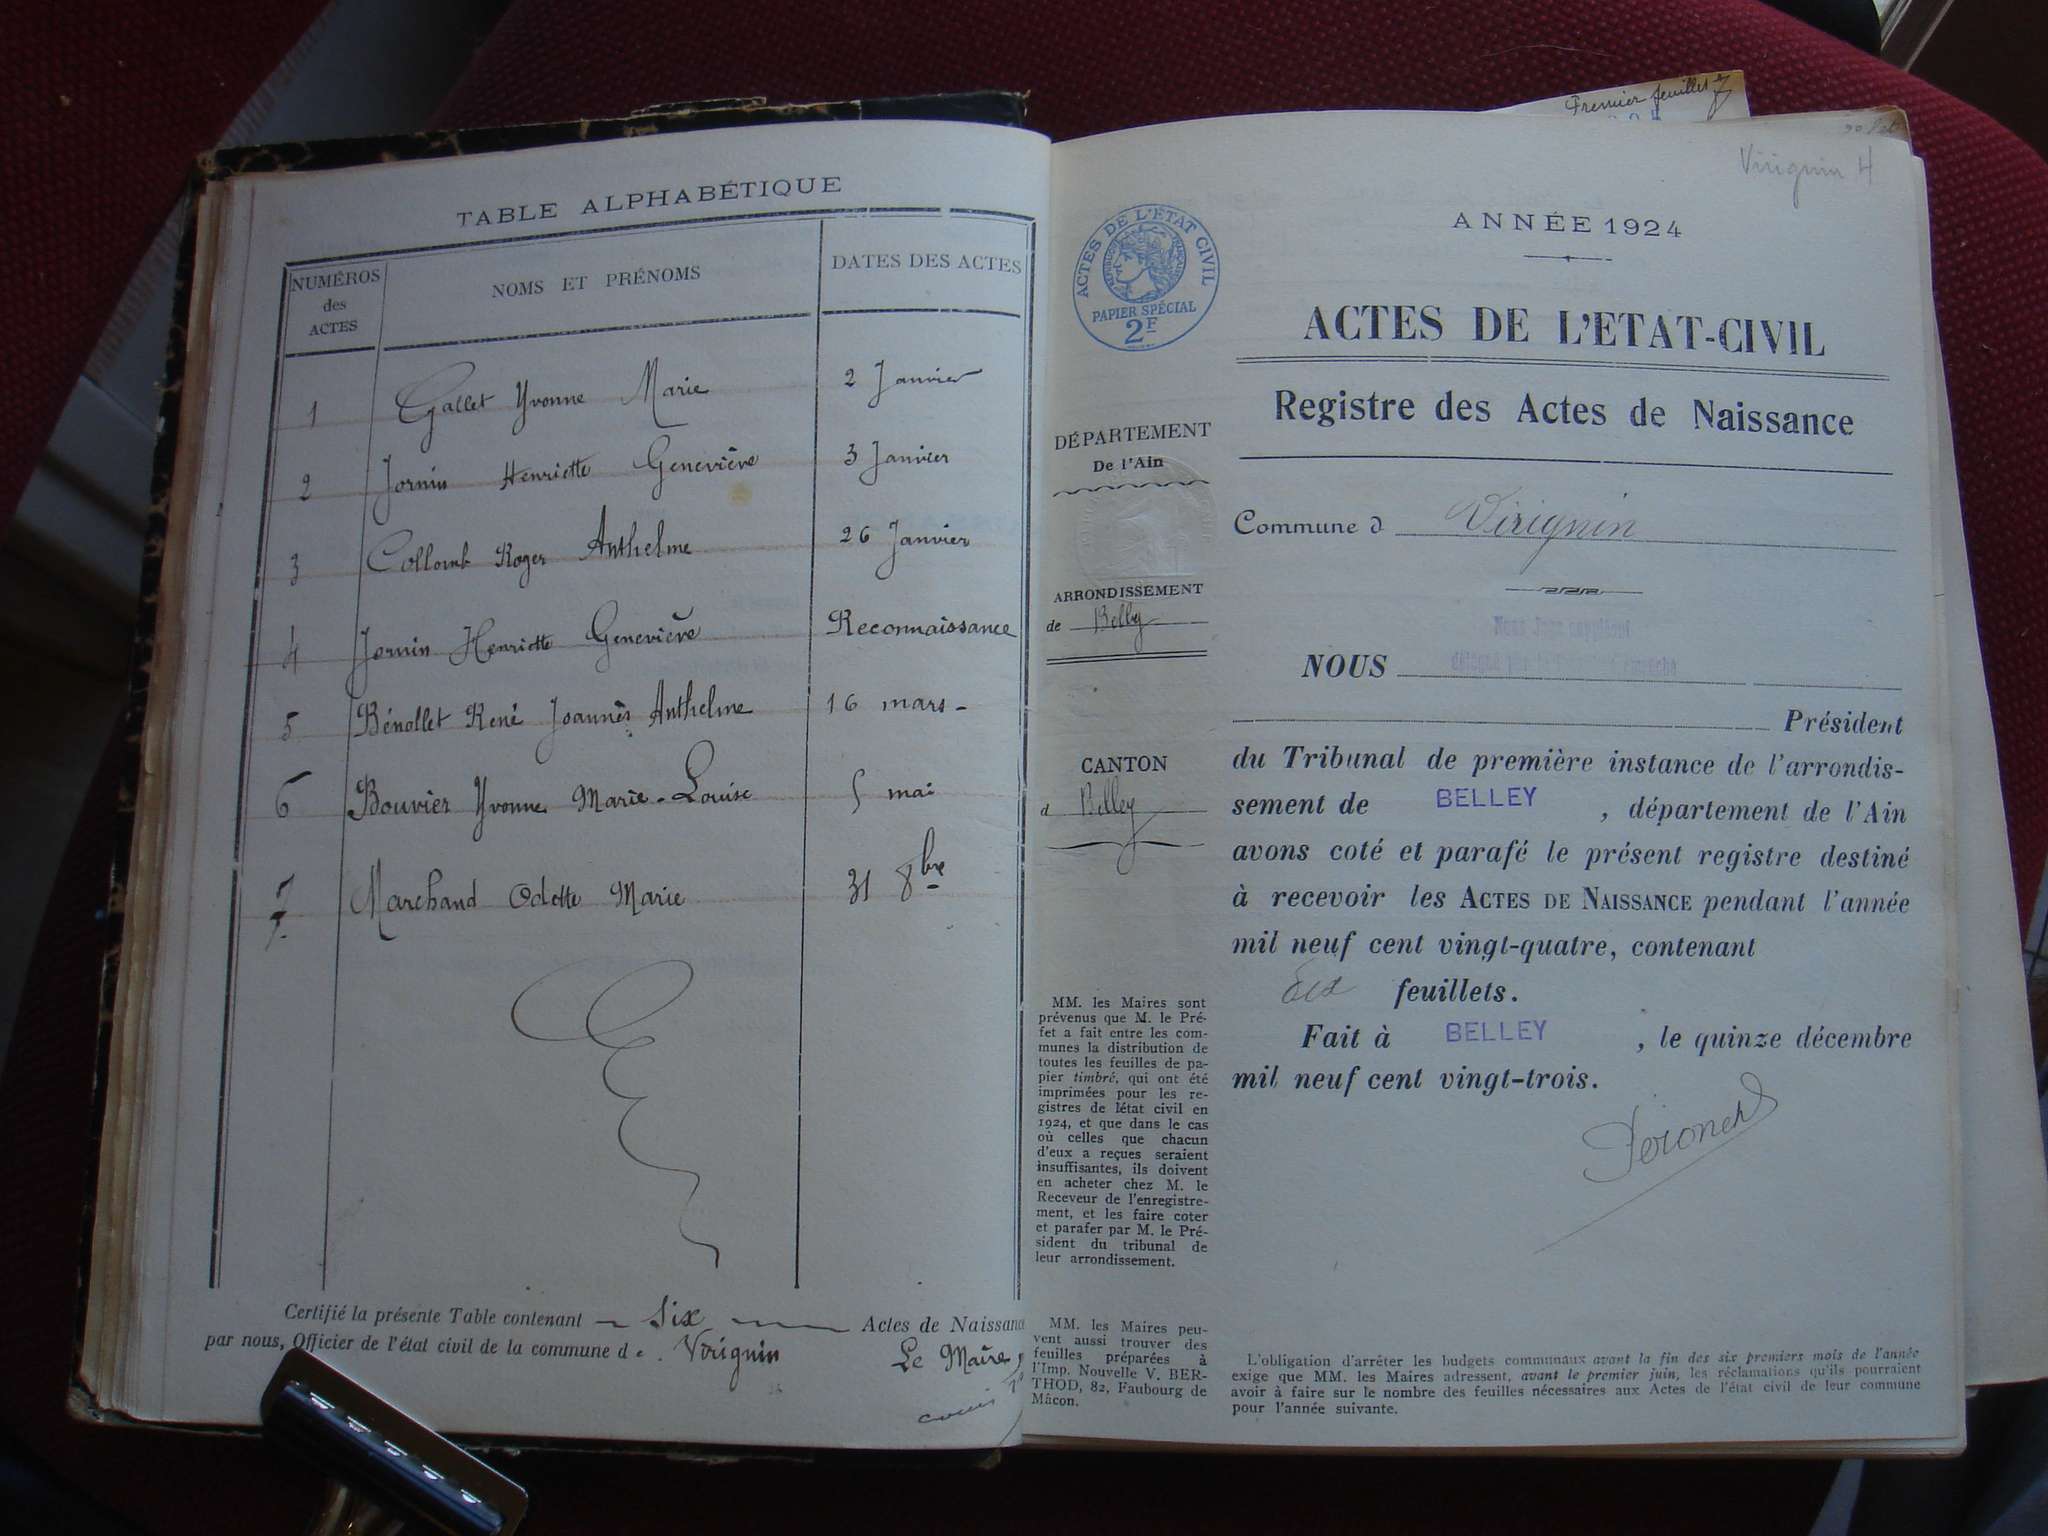 TABLE ALPHABÉTIQUE
NUMÉROS des ACTES NOMS ET PRÉNOMS DATES DES ACTES
1 Gallet Yvonne Marie 2 Janvier
2 Jornin Henriette Geneviève 3 Janvier
3 Collomb Roger Anthelme 26 Janvier
4 Jornin Henriette Geneviève Reconnaissance
5 Bénollet René Joannès Anthelme 16 mars
6 Bouvier Yvonne Marie-Louise 5 mai
7 Marchand Odette Marie 31 8bre
Certifié la présente Table contenant Six Actes de Naissanc
par nous, Officier de l'état civil de la commune de Virignin
Le Maire,
Premier feuillet
Virignin 4
ANNÉE 1924
ACTES DE L'ÉTAT CIVIL
RÉPUBLIQUE FRANÇAISE
PAPIER SPÉCIAL
2F
ACTES DE L'ETAT-CIVIL
Registre des Actes de Naissance
DÉPARTEMENT
De l'Ain
Commune d Virignin
ARRONDISSEMENT
de Belley
CANTON
d Belley
Nous Juge suppléant
NOUS
Président
du Tribunal de première instance de l'arrondis-
sement de BELLEY, département de l'Ain
avons coté et parafé le présent registre destiné
à recevoir les ACTES DE NAISSANCE pendant l'année
mil neuf cent vingt-quatre, contenant
feuillets.
Fait à BELLEY, le quinze décembre
mil neuf cent vingt-trois.
MM. les Maires sont
prévenus que M. le Pré-
fet a fait entre les com-
munes la distribution de
toutes les feuilles de pa-
pier timbré, qui ont été
imprimées pour les re-
gistres de létat civil en
1924, et que dans le cas
où celles que chacun
d'eux a reçues seraient
insuffisantes, ils doivent
en acheter chez M. le
Receveur de l'enregistre-
ment, et les faire coter
et parafer par M. le Pré-
sident du tribunal de
leur arrondissement.
MM. les Maires peu-
vent aussi trouver des
feuilles préparées à
l'Imp. Nouvelle V. BER-
THOD, 82, Faubourg de
Mâcon.
L'obligation d'arrêter les budgets communaux avant la fin des six premiers mois de l'année
exige que MM. les Maires adressent, avant le premier juin, les réclamations qu'ils pourraient
avoir à faire sur le nombre des feuilles nécessaires aux Actes de l'état civil de leur commune
pour l'année suivante.